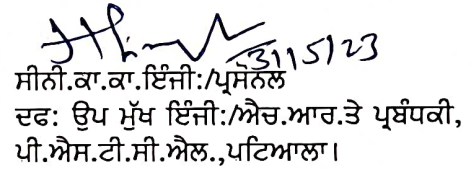 31/5/23
ਸੀਨੀ.ਕਾ.ਕਾ.ਇੰਜੀ:/ਪ੍ਰਸੋਨਲ
ਦਫ: ਉਪ ਮੁੱਖ ਇੰਜੀ:/ਐਚ.ਆਰ.ਤੇ ਪ੍ਰਬੰਧਕੀ,
ਪੀ.ਐਸ.ਟੀ.ਸੀ.ਐਲ.,ਪਟਿਆਲਾ।